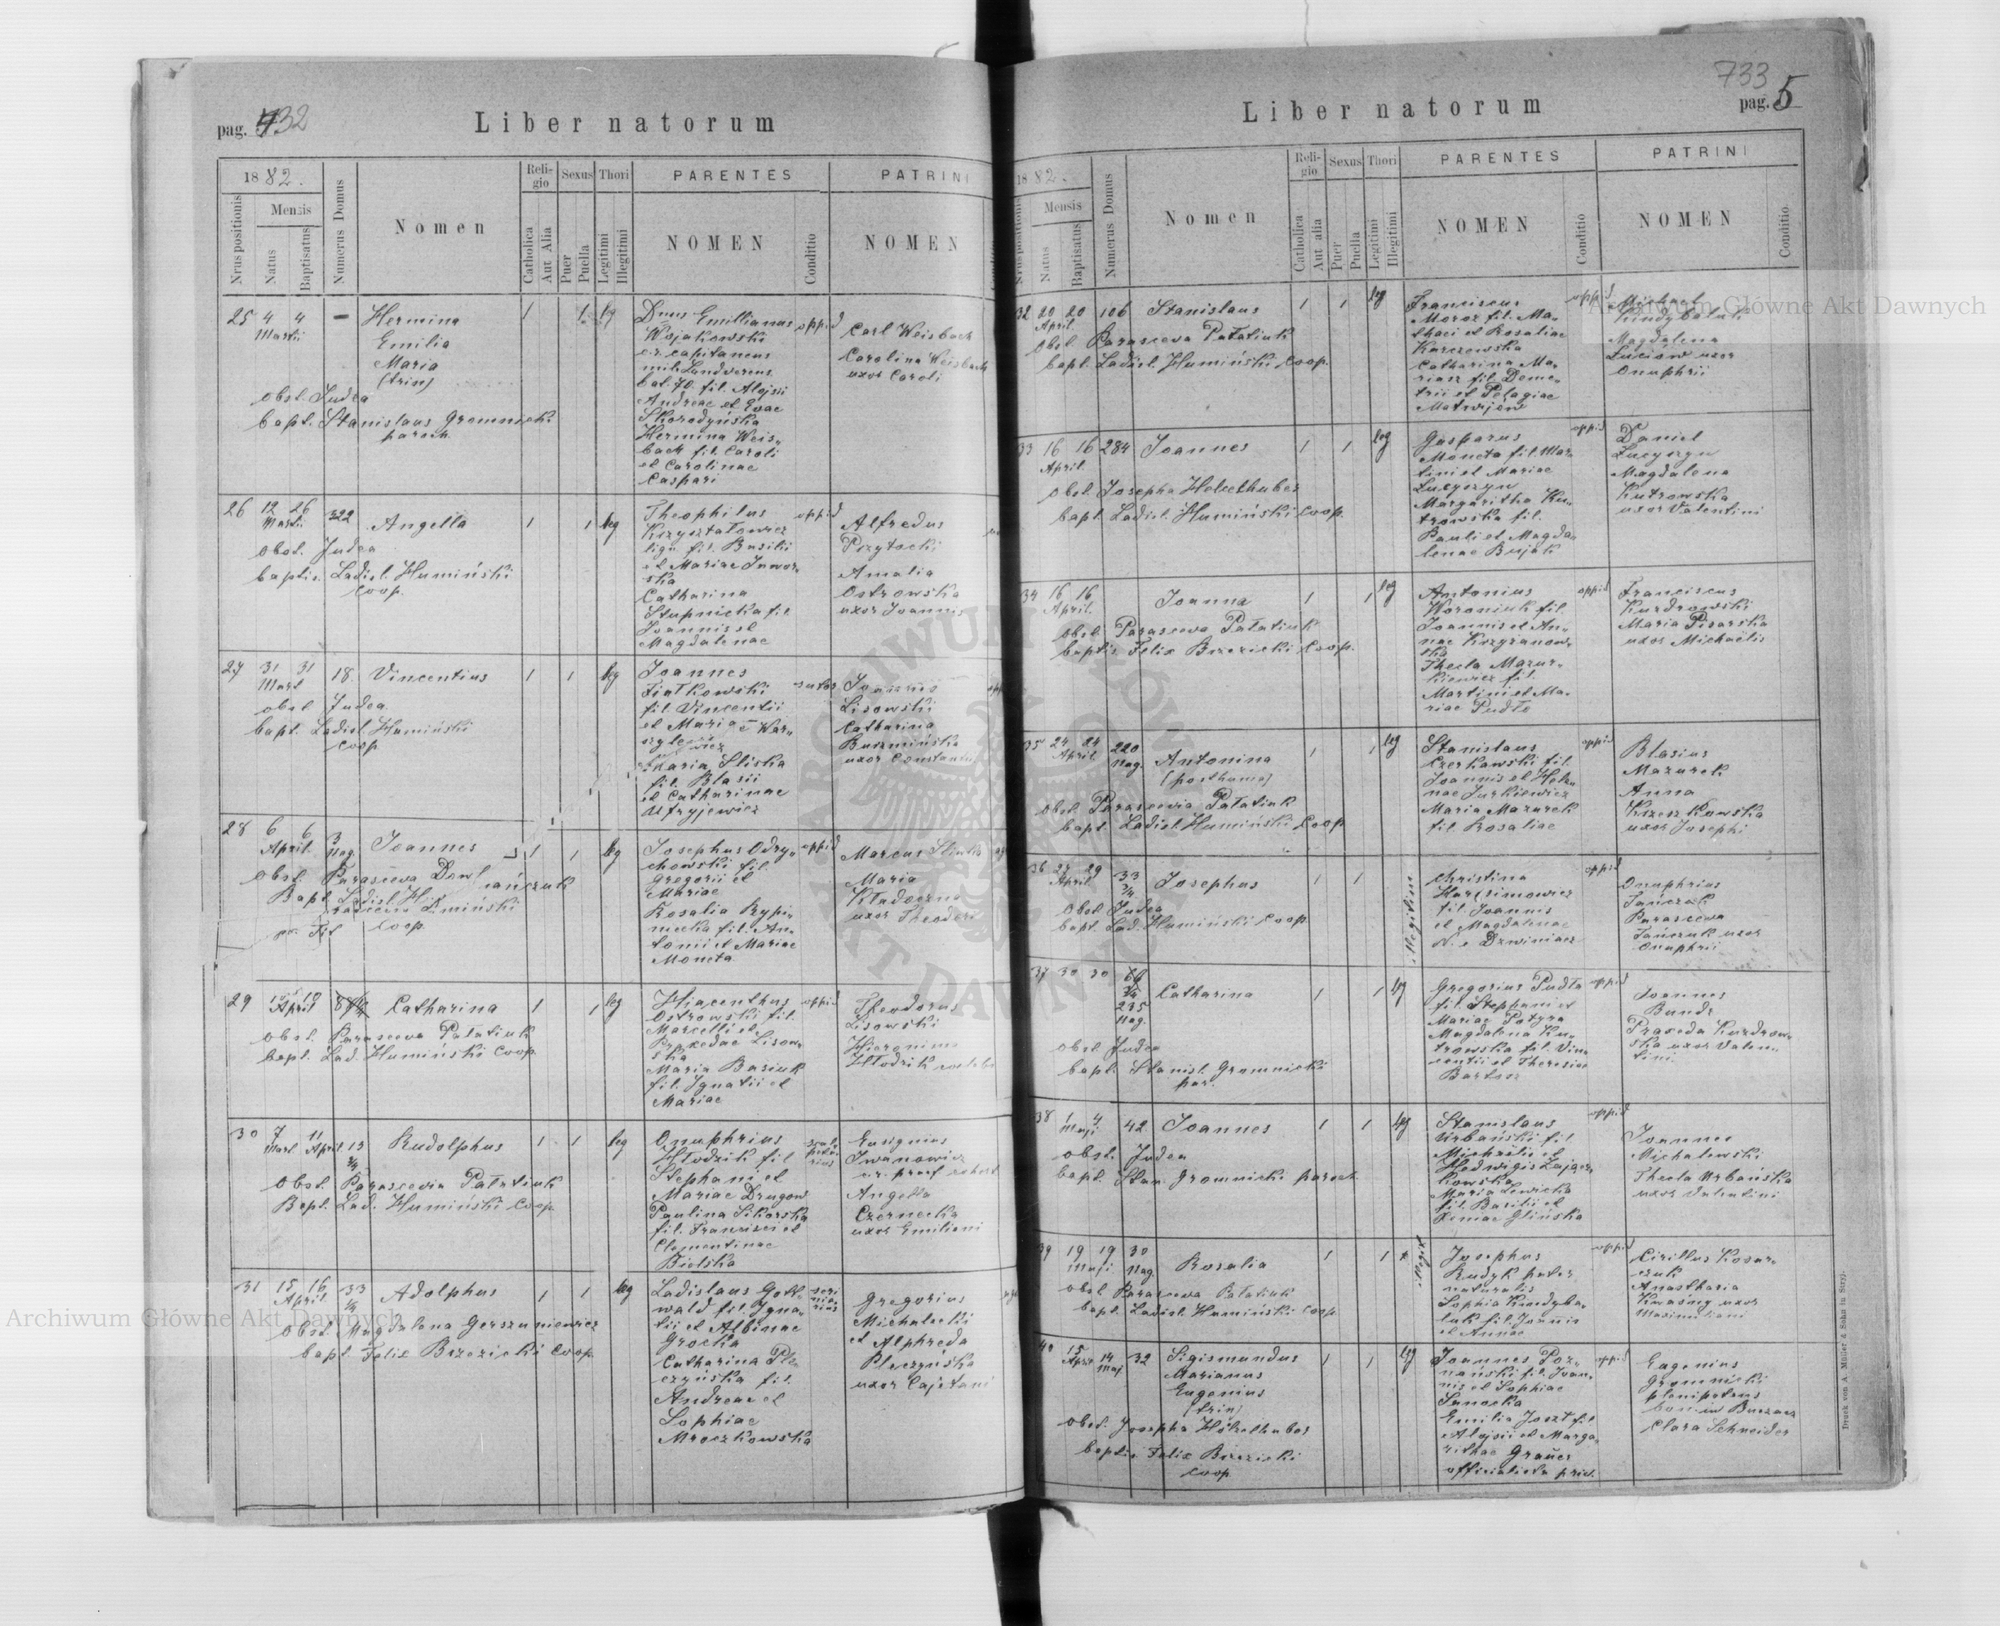 pag. 432
Liber natorum
1882.
Nrus positionis
Mensis
Natus
Baptisatus
Numerus Domus
Nomen
Religio
Catholica
Aut Alia
Sexus
Puer
Puella
Thori
Legitimi
Illegitimi
PARENTES
NOMEN
Conditio
PATRINI
NOMEN
25 4 4 Martii — Hermina
Emilia
Maria
(trin)
obst. Judea
bapt. Stanislaus Gromnicki
paroch.
1 1 leg
Dnus Emillianus
Wojakowski
c.r. capitaneus
mil. Landverens
bat. 70. fil. Alojsii
Andreae et Evae
Skorodyńska
Hermina Weis-
bach fil. Caroli
et Carolinae
Caspari
oppid
Carl Weisbach
Carolina Weisbach
uxor Caroli
26 12 26 Martii 322 Angella
obst. Judea
baptis. Ladisl. Humiński
coop.
1 1 leg
Theophilus
Krzyształowicz
fil. Basilii
et Mariae Jawor-
ska
Catharina
Stupnicka fil
Joannis et
Magdalenae
oppid
Alfredus
Przytocki
Amalia
Ostrowska
uxor Joannis
27 31 31 Mart 18. Vincentius
obst Judea
bapt. Ladisl. Humiński
coop.
1 1 leg
Joannes
Fiałkowski
fil. Vincentii
et Mariae War-
Maria Sliska
fil. Blasii
et Catharinae
Ustryjewicz
sutor
Joannes
Lisowski
Catharina
Buszmińska
uxor Constantini
28 6 6 April. 3 Nag. Joannes
obst. Parasceva Dowhańczuk
Bapt. Ladisl. Humiński
coop.
1 1 leg
Josephus Odry-
chowski fil.
Gregorii et
Mariae
Rosalia Rypi-
necka fil. An-
tonii et Mariae
Moneta
oppid
Marcus
Maria
Kładoczna
uxor Theodori
29 April Catharina
obst. Parasceva Pałatiuk
bapt. Lad. Humiński Coop.
1 1 leg
Hiacenthus
Ostrowski fil.
Marcelli et
Praxedae Lisow-
ska
Maria Basiuk
fil. Ignatii et
Mariae
oppid
Theodorus
Lisowski
Hieronima
Hłodzik
30 7 Mart 11 April 13 3/4 Rudolphus
obst. Parascevia Pałatiuk
Bapt. Lad. Humiński Coop.
1 1 leg
Onuphrius
Hłodzik fil
Stephani et
Mariae Drugow
Paulina Sikorska
fil. Francisci et
Clementinae
Bielska
Eusignius
Iwanowicz
Angella
Czernecka
uxor Emiliani
31 15 16 April. 33 1/4 Adolphus
obst. Magdalena Gerszuniewicz
bapt. Felix Brzezicki coop.
1 1 leg
Ladislaus Gott-
wald fil. Igna-
tii et Albinae
Grocka
Catharina Ple-
czyńska fil.
Andreae et
Sophiae
Mroczkowska
Gregorius
Michalecki
et Alphreda
Pleczyńska
uxor Cajetani
733
pag. 5
Liber natorum
1882.
Nrus positionis
Mensis
Natus
Baptisatus
Numerus Domus
Nomen
Religio
Catholica
Aut alia
Sexus
Puer
Puella
Thori
Legitimi
Illegitimi
PARENTES
NOMEN
Conditio
PATRINI
NOMEN
Conditio
32 20 20 April. 106 Stanislaus
Obst. Parasceva Pałatiuk
bapt. Ladisl. Humiński Coop.
1 1 leg
Franciscus
Moroz fil. Ma-
thaei et Rosaliae
Karczewska
Catharina Ma-
riasz fil. Deme-
trii et Pelagiae
Matwijów
oppid
Michael
Kindybaluk
Magdalena
Luciow uxor
Onuphrii
33 16 16 April. 284 Joannes
obst. Josepha Hekelhuber
bapt. Ladisl. Humiński coop.
1 1 leg
Gasparus
Moneta fil. Mar-
tini et Mariae
Lucyszyn
Margaritha Ku-
trowska fil.
Pauli et Magda-
lenae Bujak
oppid
Daniel
Lucyszyn
Magdalena
Kutrowska
uxor Valentini
34 16 16 April. Joanna
obst. Parasceva Pałatiuk
baptis. Felix Brzezicki Coop.
1 1 leg
Antonius
Woroniuk fil.
Joannis et An-
nae Krzyżanow-
ska
Thecla Mazur-
kiewicz fil.
Martini et Ma-
riae Pudło
oppid
Franciscus
Kuzdrowski
Maria Pisarska
uxor Michaelis
35 24 24 April. 220 Nag. Antonina
(posthuma)
obst. Parascevia Pałatiuk
bapt. Ladisl. Humiński Coop
1 1 leg
Stanislaus
Czerkawski fil.
Joannis et Hele-
nae Jurkiewicz
Maria Mazurek
fil. Rosaliae
oppid
Blasius
Mazurek
Anna
Krzeszkowska
uxor Josephi
36 27 29 April. 33 3/4 Josephus
obst. Judea
bapt. Lad. Humiński Coop.
1 1 illegitim
Christina
Harasimowicz
fil. Joannis
et Magdalenae
oppid
Onuphrius
Tańczak
Parasceva
Tańczuk uxor
Onuphrii
37 30 30 235 Nag. Catharina
obst Judea
bapt. Stanisl. Gromnicki
par.
1 1 leg
Gregorius Pudła
fil. Stephani et
Mariae Potyra
Magdalena Ku-
trowska fil. Vin-
centii et Theresiae
oppid
Joannes
Bundz
Praxeda Kuzdrow-
ska uxor Valen-
tini
38 1 4 Maji 42 Joannes
obst. Judea
bapt. Stan. Gromnicki paroch.
1 1 leg
Stanislaus
Urbański fil.
Michaelis et
Hedwigis Zającz-
kowska
Maria Lewicka
fil. Basilii et
Xeniae Glińska
oppid
Joannes
Michalewski
Thecla Urbańska
uxor Valentini
39 19 19 Maji 30 Nag. Rosalia
obst Parasceva Pałatiuk
bapt. Ladisl. Humiński coop
1 1 illegit
Josephus
Rudyk pater
naturalis
Sophia Kindyba-
luk fil. Joannis
et Annae
oppid
Cirillus Kosar-
czuk
Anasthasia
Kwaśny uxor
Maximiliani
40 15 April 14 Maj 32 Sigismundus
Marianus
Eugenius
(trin)
obst. Josepha Hökelhuber
baptis. Felix Brzezicki
coop.
1 1 leg
Joannes Poz-
nański fil. Joan-
nis et Sophiae
Sanocka
Emilia Joszt fil
Alojsii et Marga-
rithae Grauer
officialista priv.
oppid
Eugenius
Gromnicki
plenipotens
Clara Schneider
Druck von A. Müller & Sohn in Stryj.
Archiwum Główne Akt Dawnych
Archiwum Główne Akt Dawnych
ARCHIWUM GŁÓWNE AKT DAWNYCH